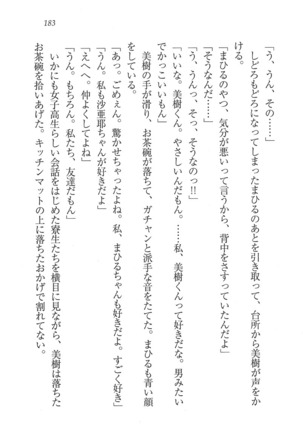 183
「う、うん、そう、そうなの」
しどろもどろになってしまったまひるのあとを引き取って、台所から美樹が声をか
ける。
「まひるのやつ、気分が悪いって言うから、背中をさすっていたんだよ」
「そうなんだ……」
「う、うんっ、そっ、そうなのっ!!」
「いいな。美樹くん。やさしいんだもん。……私、美樹くんって好きだな。男みたい
でかっこいいもん」
美樹の手が滑り、お茶碗が落ちて、ガチャンと派手な音をたてた。まひるも青い顔
をしている。
「あっ。ごめぇん。驚かせちゃったよね。私、まひるちゃんも好きだよ。すごく好き」
「うん。私も沙亜耶ちゃんが好きだよ」
「えへへ。仲よくしてよね」
「うん。もちろん。私たち、友達だもん」
いかにも女子高生らしい会話をはじめた寮生たちを横目に見ながら、美樹は落ちた
お茶碗を拾いあげた。キッチンマットの上に落ちたおかげで割れてない。